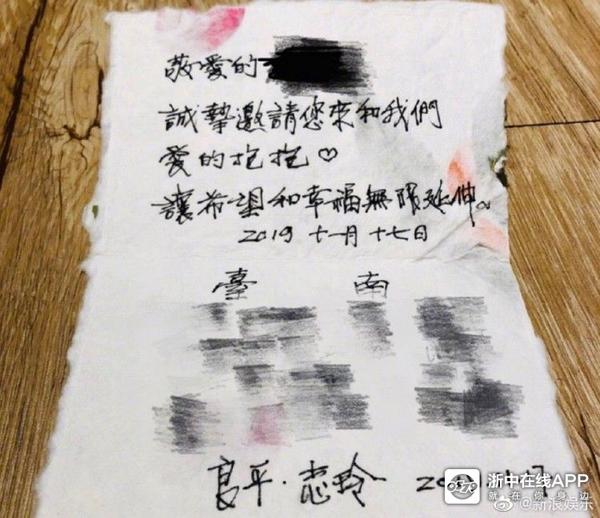 敬愛的
誠摯邀請您來和我們
愛的抱抱♡
讓希望和幸福無限延伸。
2019 十一月 十七日
臺 南
良平·志玲
浙中在线APP
就在你身边
@新浪娱乐